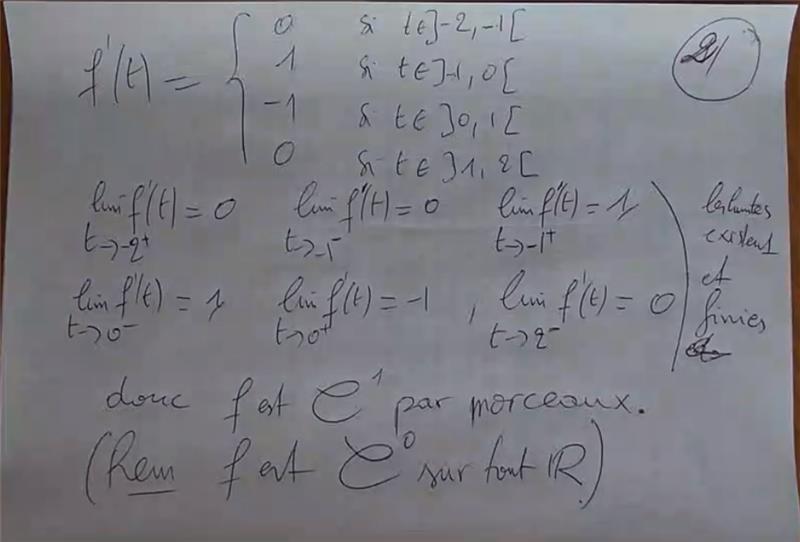 f'(t) = { 0 si t∈]-2, -1[
1 si t∈]-1, 0[
-1 si t∈]0, 1[
0 si t∈]1, 2[
2/
lim f'(t) = 0 lim f'(t) = 0 lim f'(t) = 1
t→-2⁺ t→-1⁻ t→-1⁺
lim f'(t) = 1 lim f'(t) = -1 , lim f'(t) = 0
t→0⁻ t→0⁺ t→2⁻
les limites
existent
et
finies
donc f est C¹ par morceaux.
(Rem f est C⁰ sur tout ℝ)